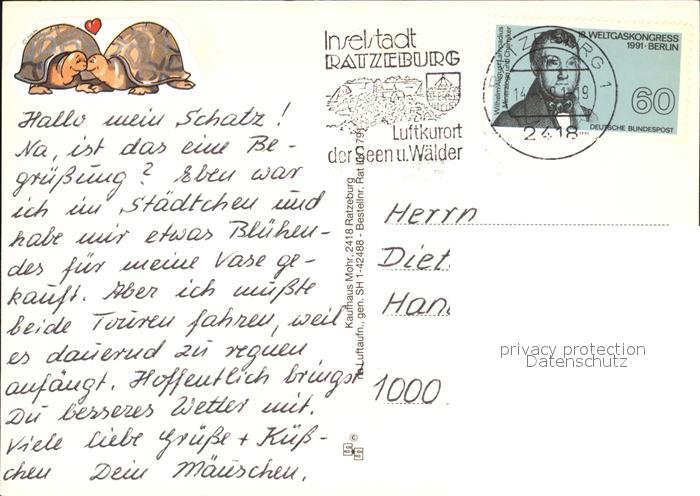 Hallo mein Schatz!
Na, ist das eine Be-
grüßung? Eben war
ich im Städtchen und
habe mir etwas Blühen-
des für meine Vase ge-
kauft. Aber ich mußte
beide Touren fahren, weil
es dauernd zu regnen
anfängt. Hoffentlich bringst
Du besseres Wetter mit.
Viele liebe Grüße + Küß-
chen Dein Mäuschen.
Inselstadt
RATZEBURG
Luftkurort
der Seen u. Wälder
18. WELTGASKONGRESS
1991 · BERLIN
Wilhelm August Lampadius
60
DEUTSCHE BUNDESPOST
RATZEBURG 1
2418
Kaufhaus Mohr, 2418 Ratzeburg
Luftaufn., gen. SH 1-42488 - Bestellnr. Rat
Herrn
Diet
Han
1000
privacy protection
Datenschutz
©